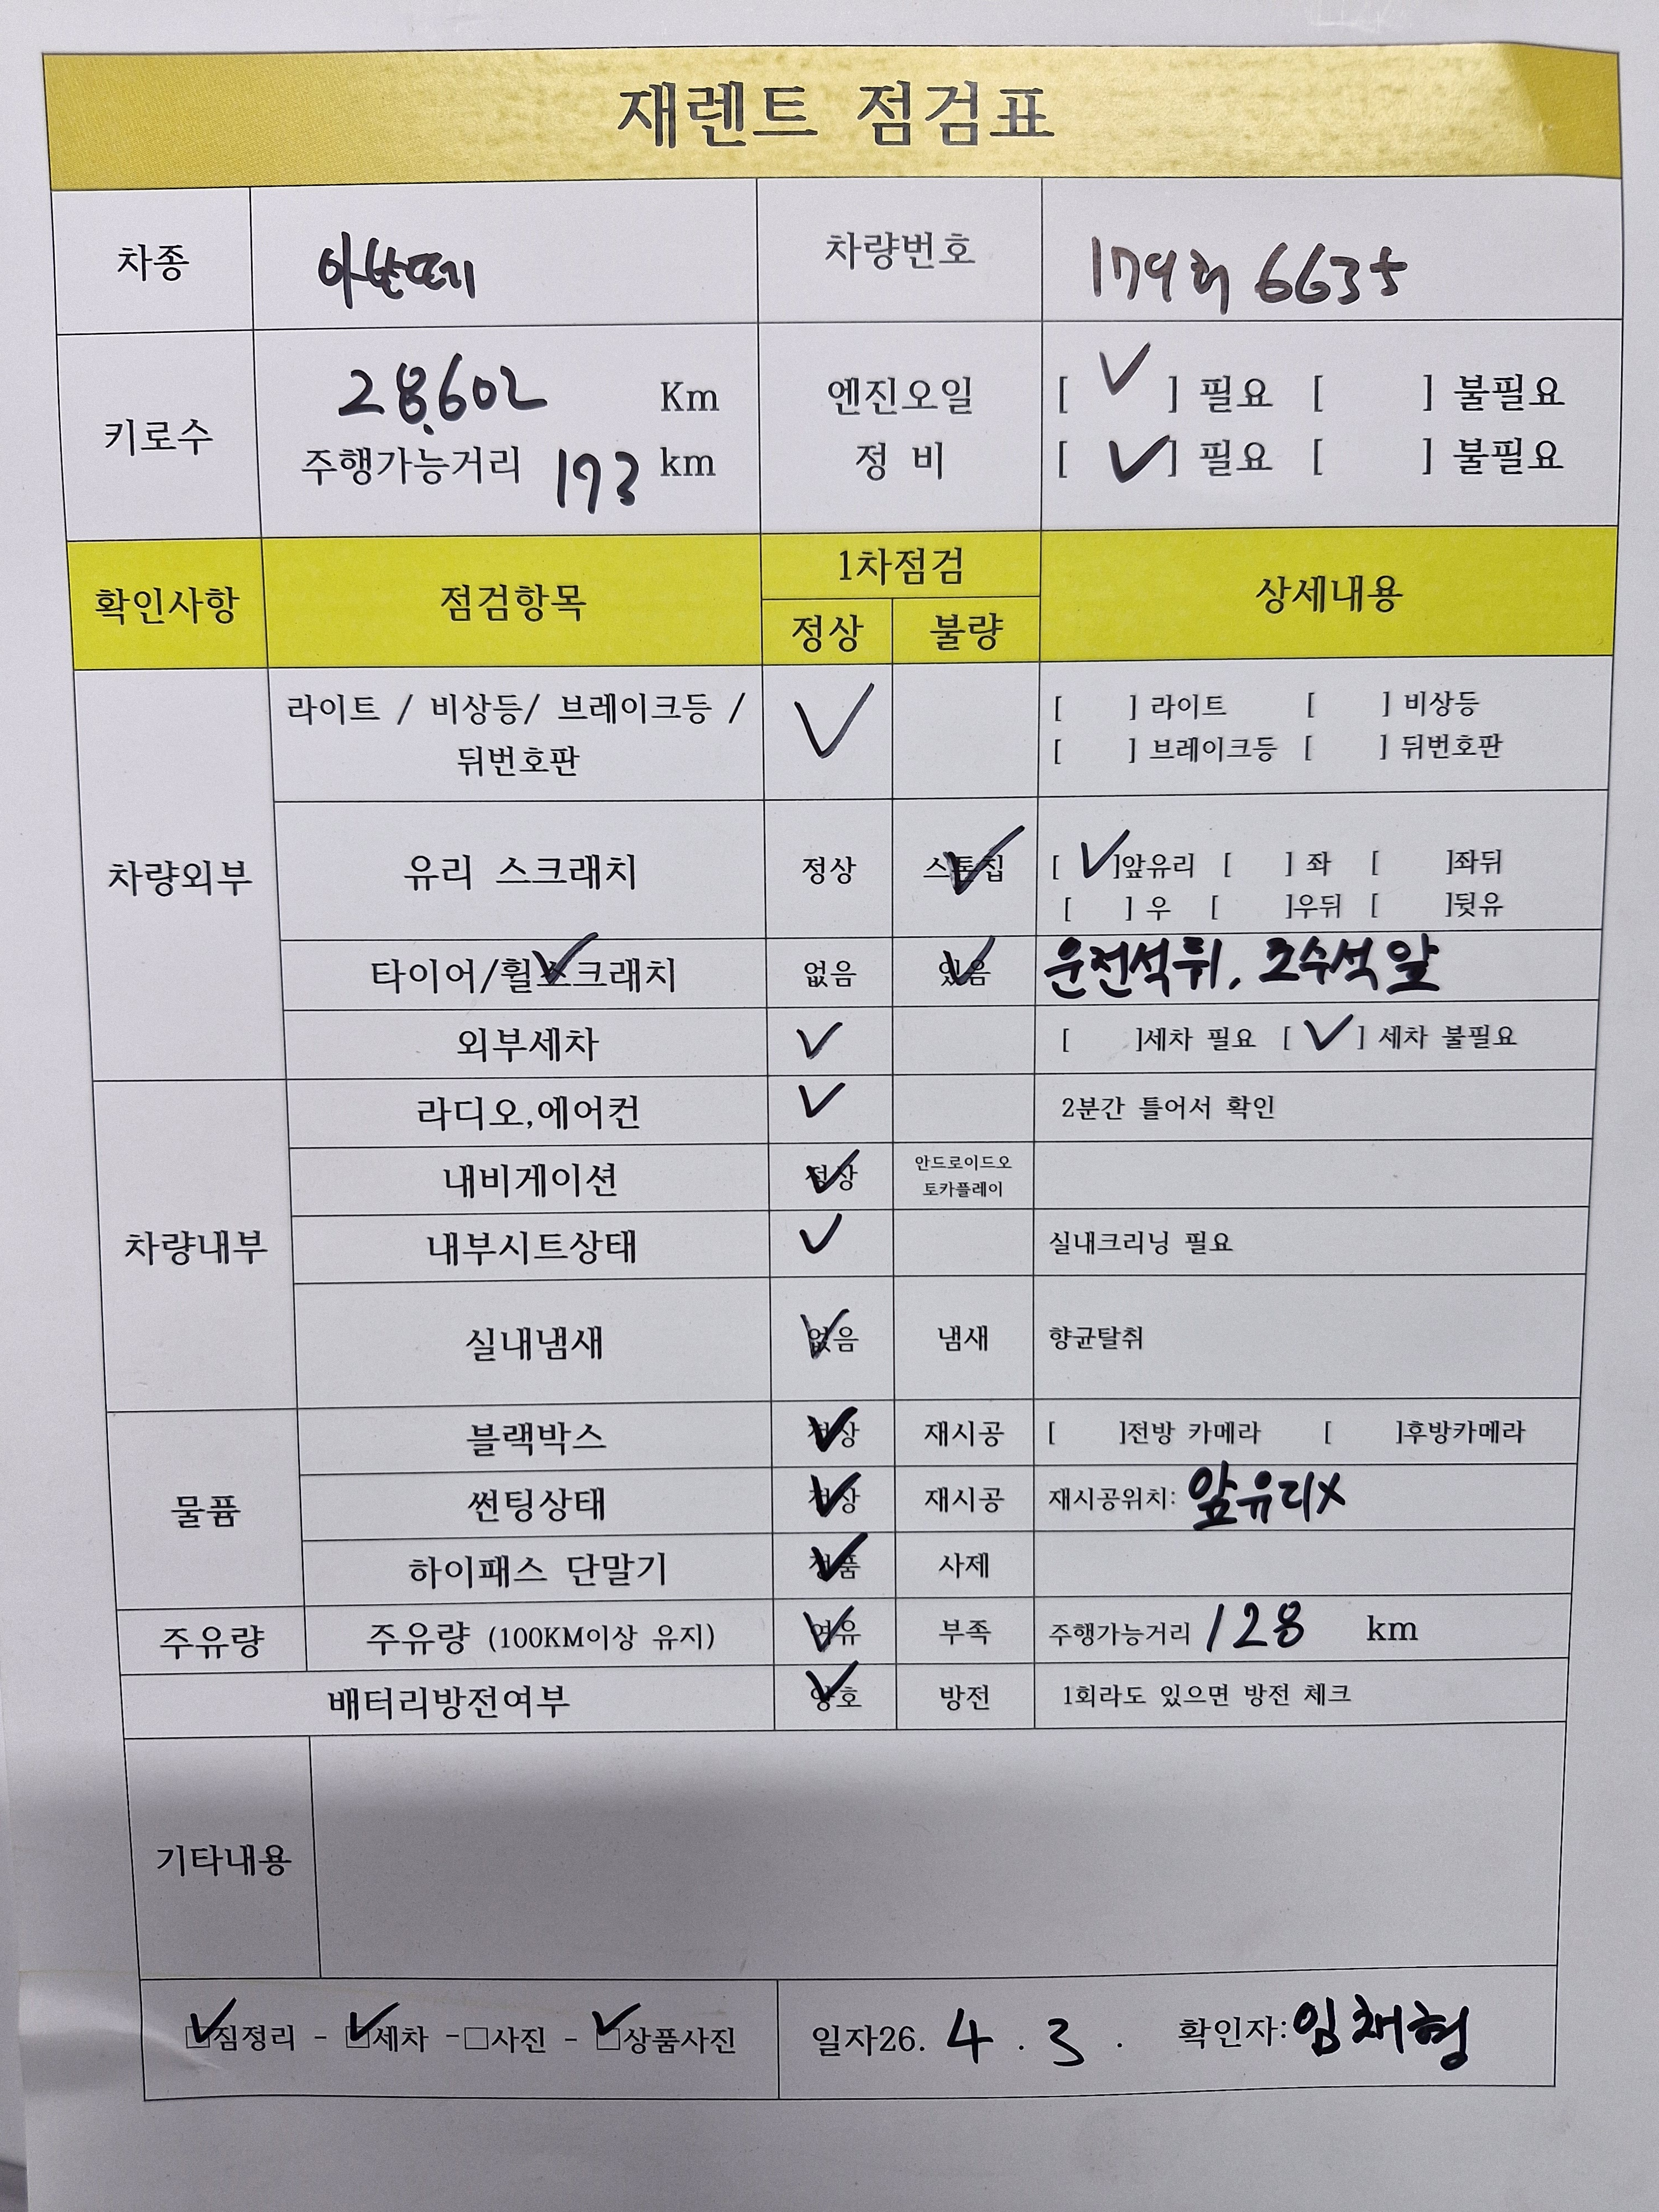 재렌트 점검표
차종 아반떼 차량번호 179허 6635
키로수 28,602 Km 엔진오일 [ ✓ ] 필요 [ ] 불필요
주행가능거리 193 km 정 비 [ ✓ ] 필요 [ ] 불필요
확인사항 점검항목 1차점검 상세내용
정상 불량
차량외부
라이트 / 비상등/ 브레이크등 / ✓ [ ] 라이트 [ ] 비상등
뒤번호판 [ ] 브레이크등 [ ] 뒤번호판
유리 스크래치 정상 스톤칩 ✓ [ ✓ ]앞유리 [ ] 좌 [ ]좌뒤
[ ] 우 [ ]우뒤 [ ]뒷유
타이어/휠스크래치 ✓ 없음 있음 ✓ 운전석뒤, 조수석앞
외부세차 ✓ [ ]세차 필요 [ ✓ ] 세차 불필요
차량내부
라디오,에어컨 ✓ 2분간 틀어서 확인
내비게이션 정상 ✓ 안드로이드오
토카플레이
내부시트상태 ✓ 실내크리닝 필요
실내냄새 없음 ✓ 냄새 향균탈취
물품
블랙박스 정상 ✓ 재시공 [ ]전방 카메라 [ ]후방카메라
썬팅상태 정상 ✓ 재시공 재시공위치: 앞유리x
하이패스 단말기 정품 ✓ 사제
주유량 주유량 (100KM이상 유지) 여유 ✓ 부족 주행가능거리 128 km
배터리방전여부 양호 ✓ 방전 1회라도 있으면 방전 체크
기타내용
☑짐정리 - ☑세차 -□사진 - ☑상품사진 일자26. 4 . 3 . 확인자:임채형